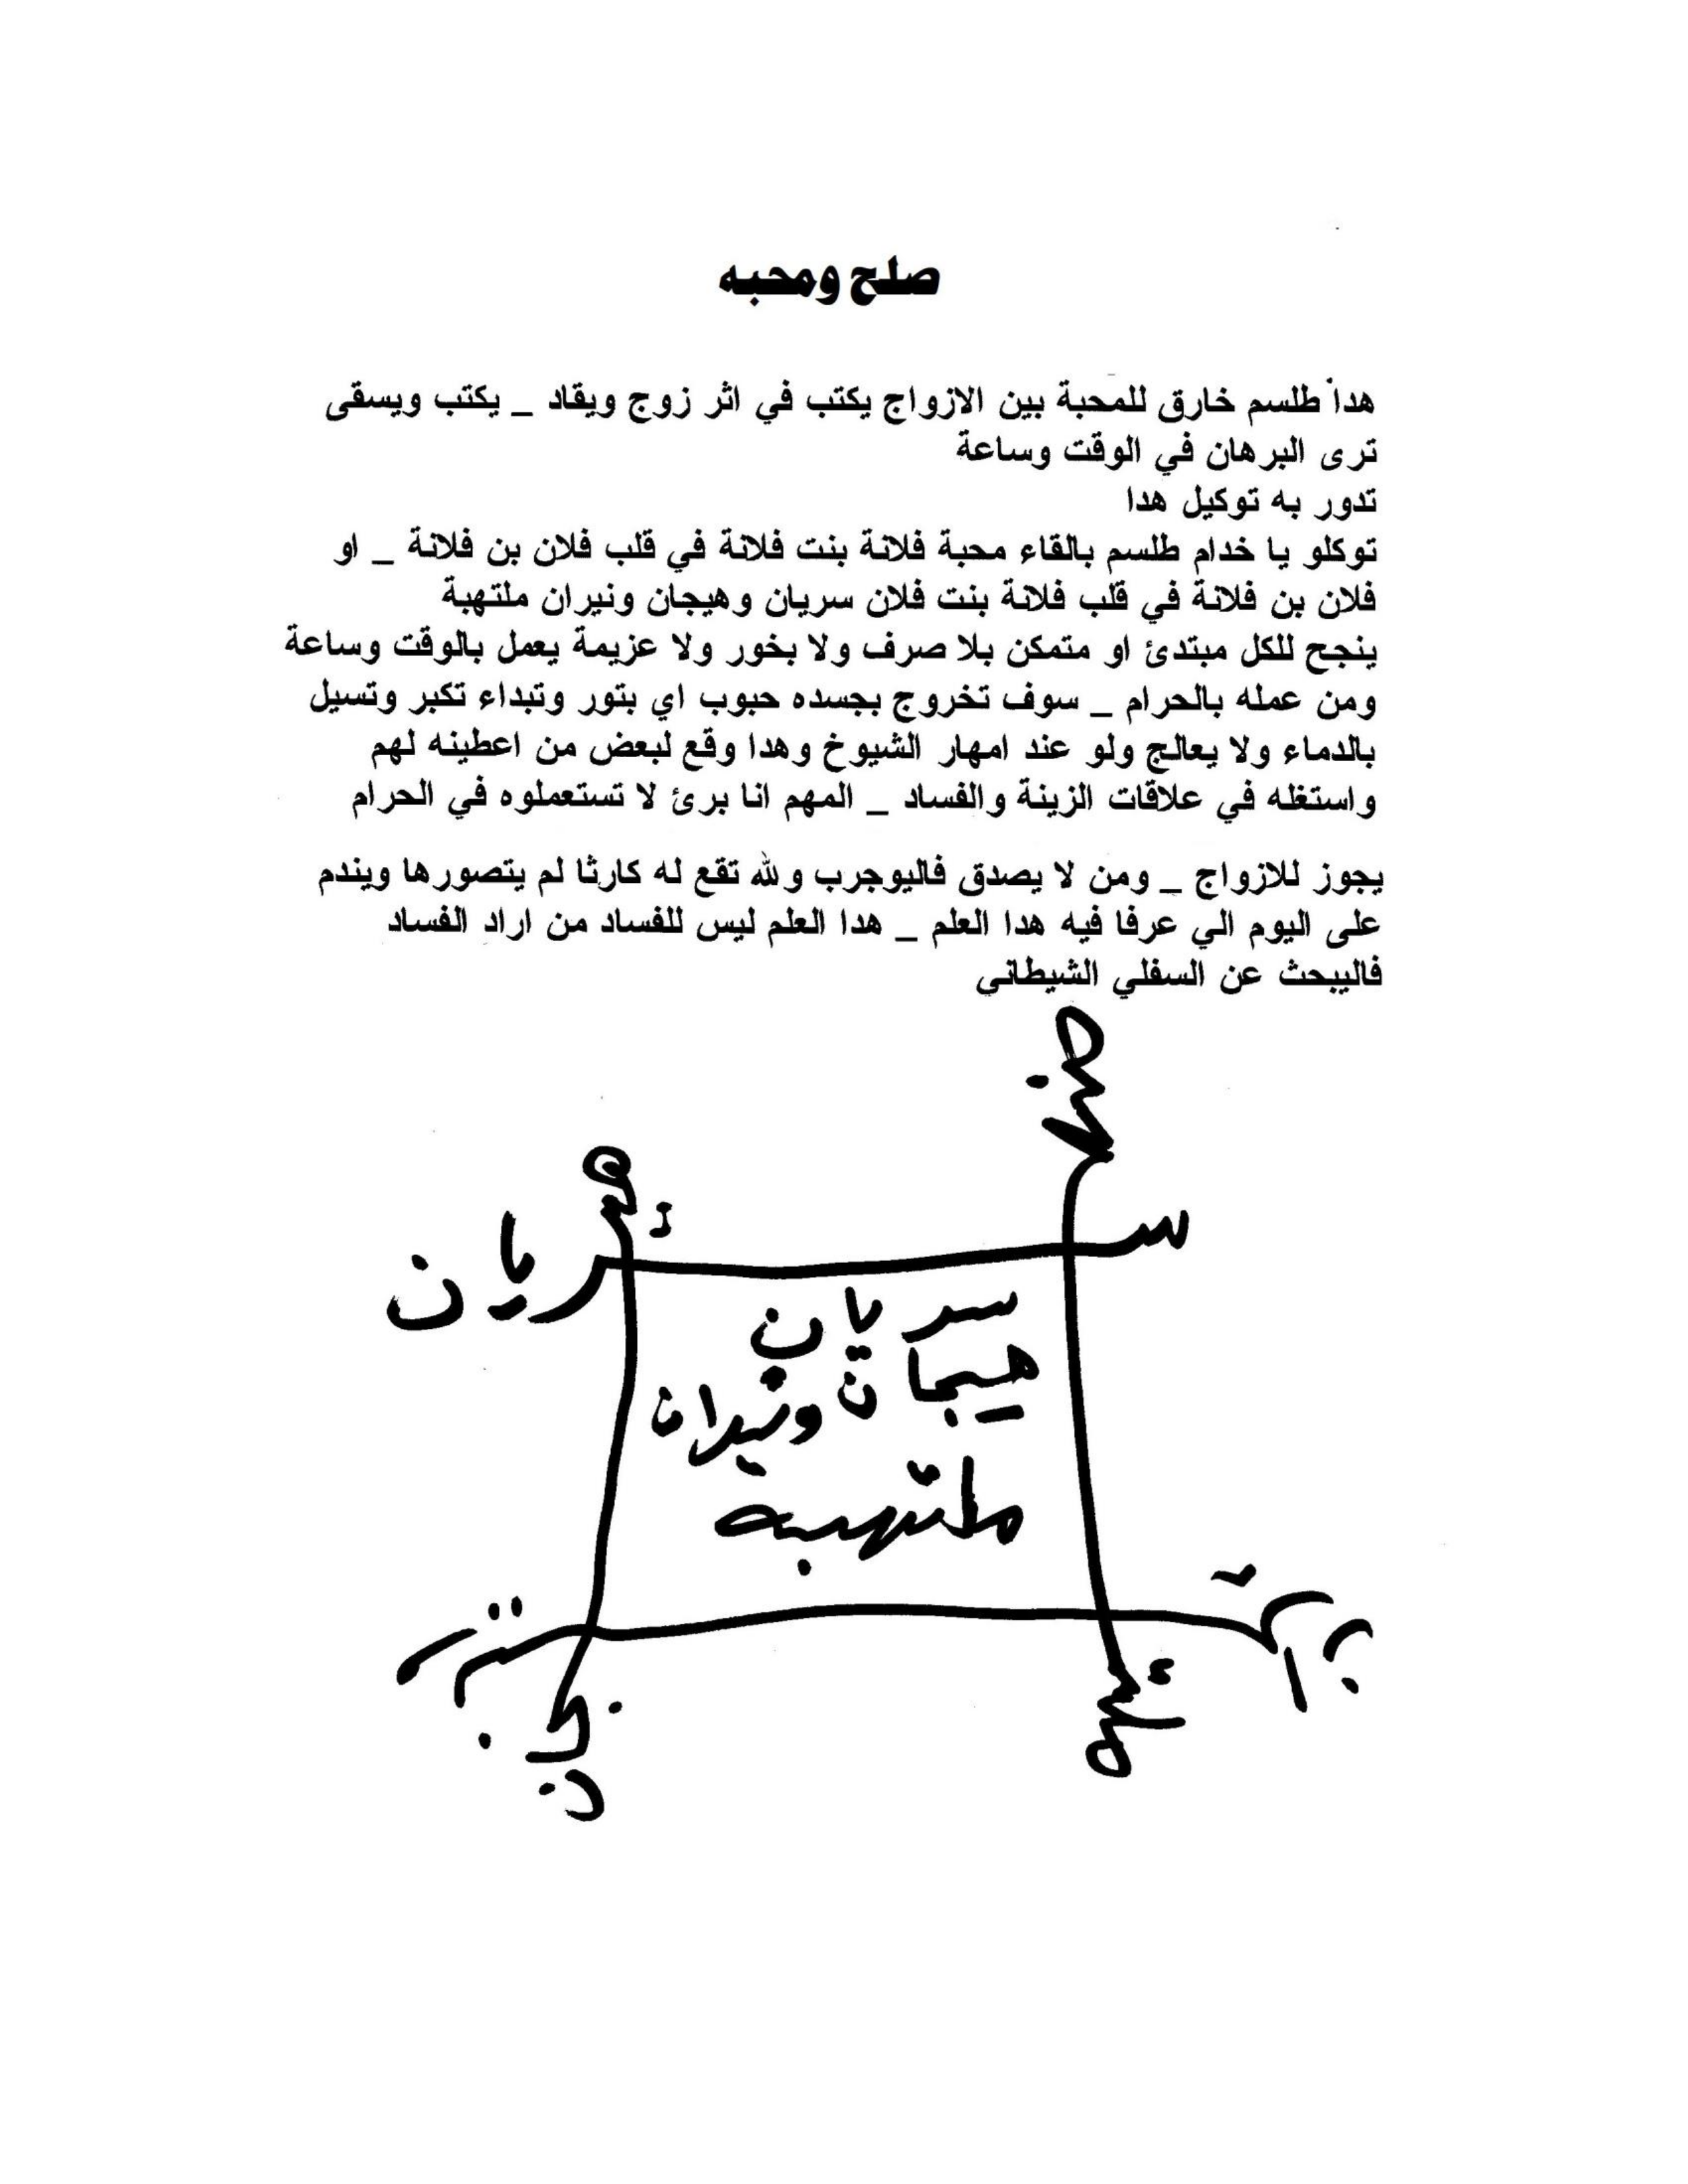 صلح ومحبه
هدا طلسم خارق للمحبة بين الازواج يكتب في اثر زوج ويقاد _ يكتب ويسقى
ترى البرهان في الوقت وساعة
تدور به توكيل هدا
توكلو يا خدام طلسم بالقاء محبة فلانة بنت فلانة في قلب فلان بن فلانة _ او
فلان بن فلانة في قلب فلانة بنت فلان سريان وهيجان ونيران ملتهبة
ينجح للكل مبتدئ او متمكن بلا صرف ولا بخور ولا عزيمة يعمل بالوقت وساعة
ومن عمله بالحرام _ سوف تخروج بجسده حبوب اي بتور وتبداء تكبر وتسيل
بالدماء ولا يعالج ولو عند امهار الشيوخ وهدا وقع لبعض من اعطينه لهم
واستغله في علاقات الزينة والفساد _ المهم انا برئ لا تستعملوه في الحرام
يجوز للازواج _ ومن لا يصدق فاليوجرب ولله تقع له كارثا لم يتصورها ويندم
على اليوم الي عرفا فيه هدا العلم _ هدا العلم ليس للفساد من اراد الفساد
فاليبحث عن السفلي الشيطاني
سريان
سريان
هيجان ونيران
ملتهبة